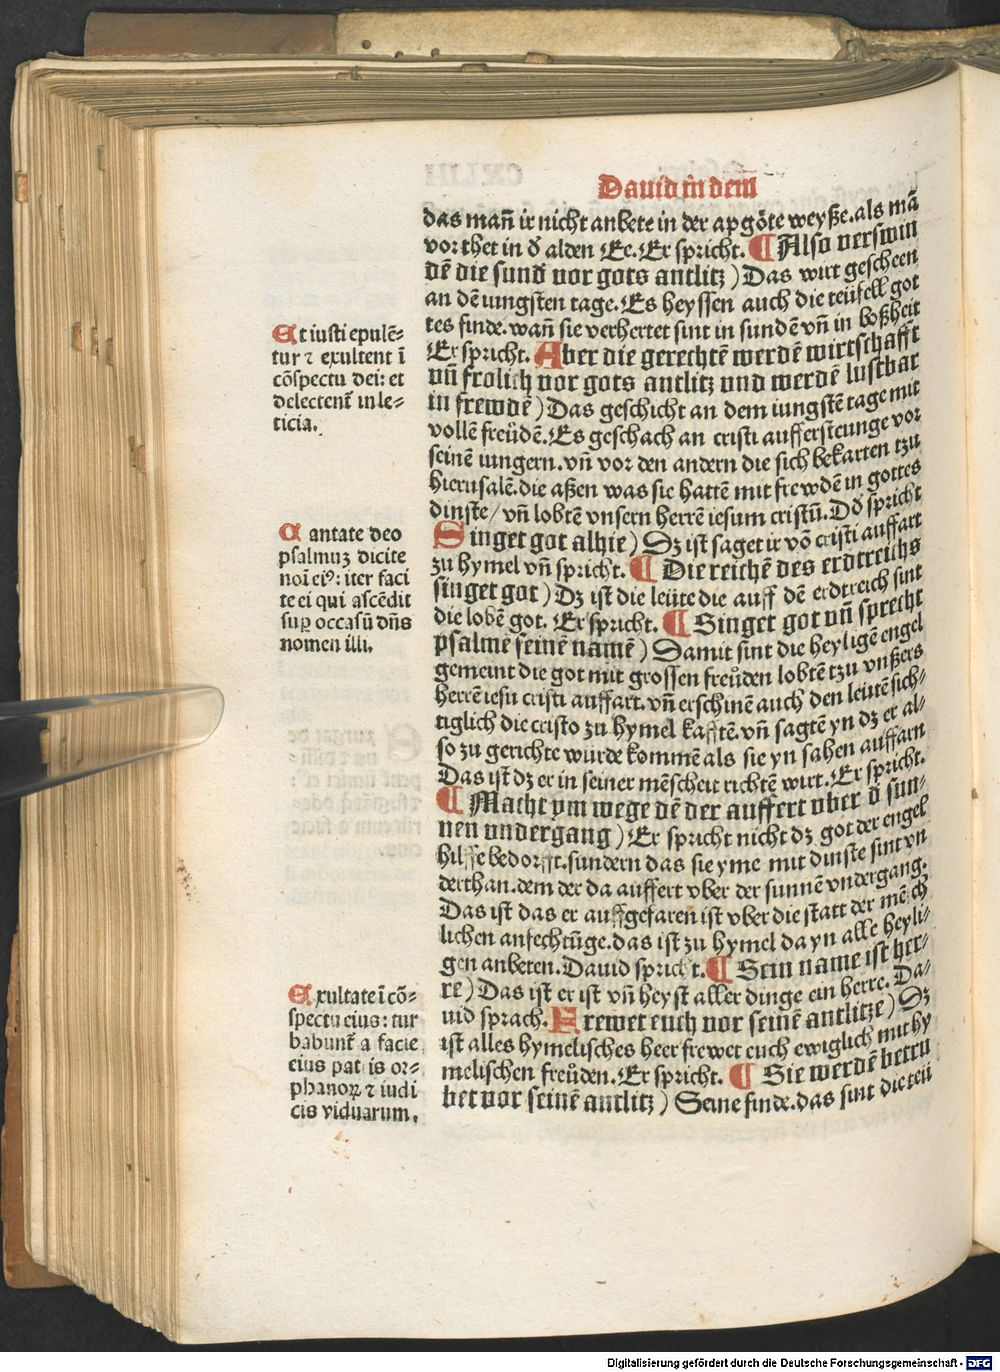 Dauid in dem
das mañ ir nicht anbete in der apgöte weyße. als mā
vor thet in d̕ alden Ee. Er spricht. ¶ Also verswin
dē die sund vor gots antlitz) Das wirt gescheen
an dē iungsten tage. Es heyssen auch die teüfell got
tes finde. wañ sie verhertet sint in sundē vñ in boßheit
Er spricht. Aber die gerechtē werdē wirtschafft
vñ frolich vor gots antlitz vnd werdē lustbar
in frewdē) Das geschicht an dem iungstē tage mit
vollē freůdē. Es geschach an cristi auffersteunge vor
seinē iungern. vñ vor den andern die sich bekarten tzu
hierusalē. die aßen was sie hattē mit frewdē in gottes
dinste/ vñ lobtē vnsern herrē iesum cristū. Dd̕ spricht
Singet got alhie) Dz ist saget ir vō cristi auffart
zu hymel vñ spricht. ¶ Die reichē des erdtreichs
singet got) Dz ist die leüte die auff dē erdtreich sint
die lobē got. Er spricht. ¶ Singet got vñ sprecht
psalmē seinē namē) Damit sint die heyligē engel
gemeint die got mit grossen freůden lobtē tzu vnßers
herrē iesu cristi auffart. vñ erschinē auch den leutē sich-
tiglich die cristo zu hymel kafftē. vñ sagtē yn dz er al-
so zu gerichte wurde kommē als sie yn sahen auffarn
Das ist dz er in seiner mēscheit richtē wirt. Er spricht.
¶ Macht ym wege dē der auffert vber d̕ sun-
nen vndergang) Er spricht nicht dz got der engel
hilffe bedorfft. sundern das sie yme mit dinste sint vn
derthan. dem der da auffert vber der sunnē vndergang.
Das ist das er auffgefaren ist vber die statt der mēsch
lichen anfechtūge. das ist zu hymel da yn alle heyli-
gen anbeten. Dauid spricht. ¶ Sein name ist her-
re) Das ist er ist vñ heyst aller dinge ein herre. Da-
uid sprach. Frewet euch vor seinē antlitze) Dz
ist alles hymelisches heer frewet euch ewiglich mit hy
melischen freůden. Er spricht. ¶ Sie werdē betru
bet vor seinē antlitz) Seine finde. das sint die teü
Et iusti epulē-
tur ⁊ exultent ī
cōspectu dei: et
delectent̄ in le-
ticia.
Cantate deo
psalmuꝫ dicite
noī eiꝰ: iter faci
te ei qui ascēdit
suꝑ occasū dn̄s
nomen illi.
Exultate ī cō-
spectu eius: tur
babunt̄ a facie
eius patris or-
phanoꝝ ⁊ iudi
cis viduarum.
Digitalisierung gefördert durch die Deutsche Forschungsgemeinschaft - DFG